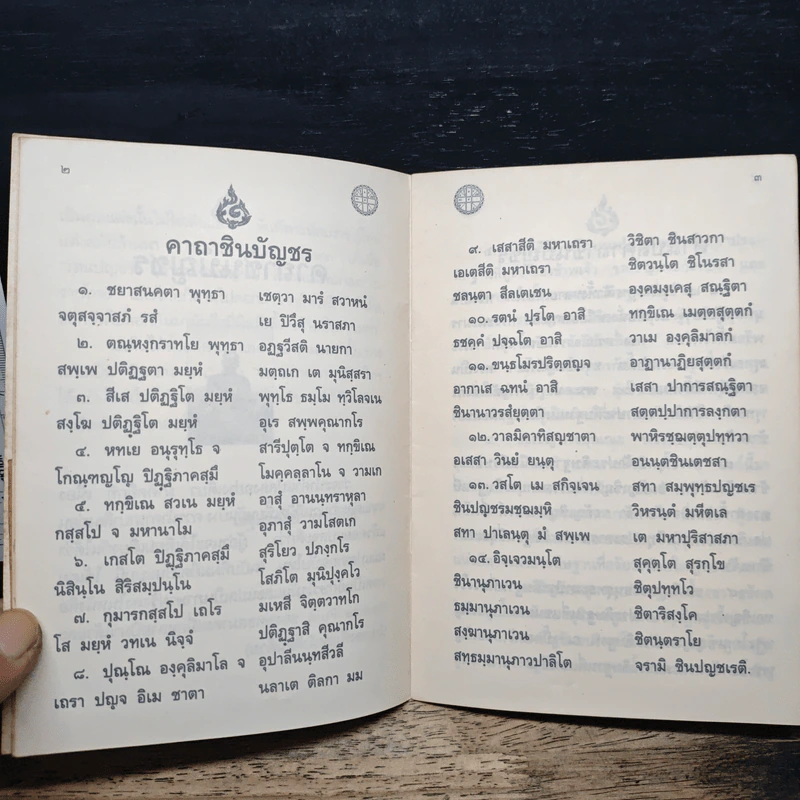 ๒
คาถาชินบัญชร
๑. ชยาสนคตา พุทฺธา เชตฺวา มารํ สวาหนํ
จตุสจฺจาสภํ รสํ เย ปิวึสุ นราสภา
๒. ตณฺหงฺกราทโย พุทฺธา อฏฺฐวีสติ นายกา
สพฺเพ ปติฏฺฐิตา มยฺหํ มตฺถเก เต มุนิสฺสรา
๓. สีเส ปติฏฺฐิโต มยฺหํ พุทฺโธ ธมฺโม ทฺวิโลจเน
สงฺโฆ ปติฏฺฐิโต มยฺหํ อุเร สพฺพคุณากโร
๔. หทเย อนุรุทฺโธ จ สารีปุตฺโต จ ทกฺขิเณ
โกณฺฑญฺโญ ปิฏฺฐิภาคสฺมึ โมคฺคลฺลาโน จ วามเก
๕. ทกฺขิเณ สวเน มยฺหํ อาสุํ อานนฺทราหุลา
กสฺสโป จ มหานาโม อุภาสุํ วามโสตเก
๖. เกสโต ปิฏฺฐิภาคสฺมึ สุริโยว ปภงฺกโร
นิสินฺโน สิริสมฺปนฺโน โสภิโต มุนิปุงฺคโว
๗. กุมารกสฺสโป เถโร มเหสี จิตฺตวาทโก
โส มยฺหํ วทเน นิจฺจํ ปติฏฺฐาสิ คุณากโร
๘. ปุณฺโณ องฺคุลิมาโล จ อุปาลีนนฺทสีวลี
เถรา ปญฺจ อิเม ชาตา นลาเต ติลกา มม
๓
๙. เสสาสีติ มหาเถรา วิชิตา ชินสาวกา
เอเตสีติ มหาเถรา ชิตวนฺโต ชิโนรสา
ชลนฺตา สีลเตเชน องฺคมงฺเคสุ สณฺฐิตา
๑๐. รตนํ ปุรโต อาสิ ทกฺขิเณ เมตฺตสุตฺตกํ
ธชคฺคํ ปจฺฉโต อาสิ วาเม องฺคุลิมาลกํ
๑๑. ขนฺธโมรปริตฺตญฺจ อาฏานาฏิยสุตฺตกํ
อากาเส ฉทนํ อาสิ เสสา ปาการสณฺฐิตา
ชินานาวรสํยุตฺตา สตฺตปฺปาการลงฺกตา
๑๒. วาลมิคาทิสญฺชาตา พาหิรชฺฌตฺตุปทฺทวา
อเสสา วินยํ ยนฺตุ อนนฺตชินเตชสา
๑๓. วสโต เม สกิจฺเจน สทา สมฺพุทฺธปญฺชเร
ชินปญฺชรมชฺฌมฺหิ วิหรนฺตํ มหีตเล
สทา ปาเลนฺตุ มํ สพฺเพ เต มหาปุริสาสภา
๑๔. อิจฺเจวมนฺโต สุคุตฺโต สุรกฺโข
ชินานุภาเวน ชิตุปทฺทโว
ธมฺมานุภาเวน ชิตาริสงฺโค
สงฺฆานุภาเวน ชิตนฺตราโย
สทฺธมฺมานุภาวปาลิโต จรามิ ชินปญฺชเรติ.